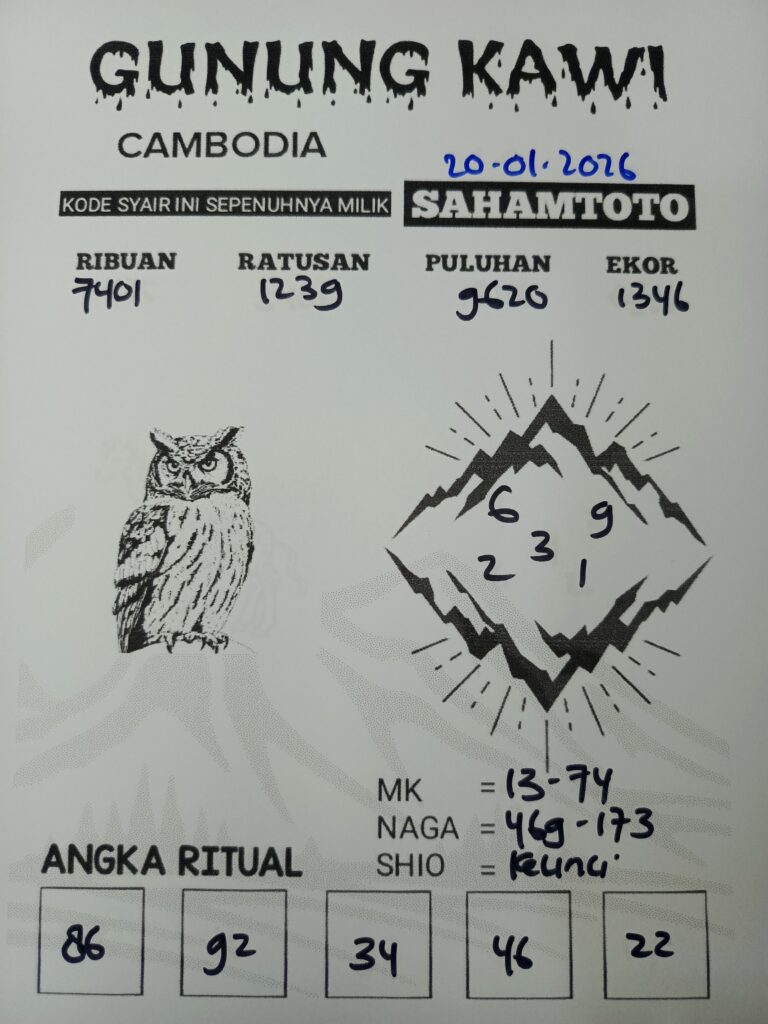 GUNUNG KAWI
CAMBODIA
20-01-2026
KODE SYAIR INI SEPENUHNYA MILIK SAHAMTOTO
RIBUAN RATUSAN PULUHAN EKOR
7401 1239 9620 1346
6 9
3
2 1
MK = 13-74
NAGA = 469-173
SHIO = Kelinci
ANGKA RITUAL
86 92 34 46 22